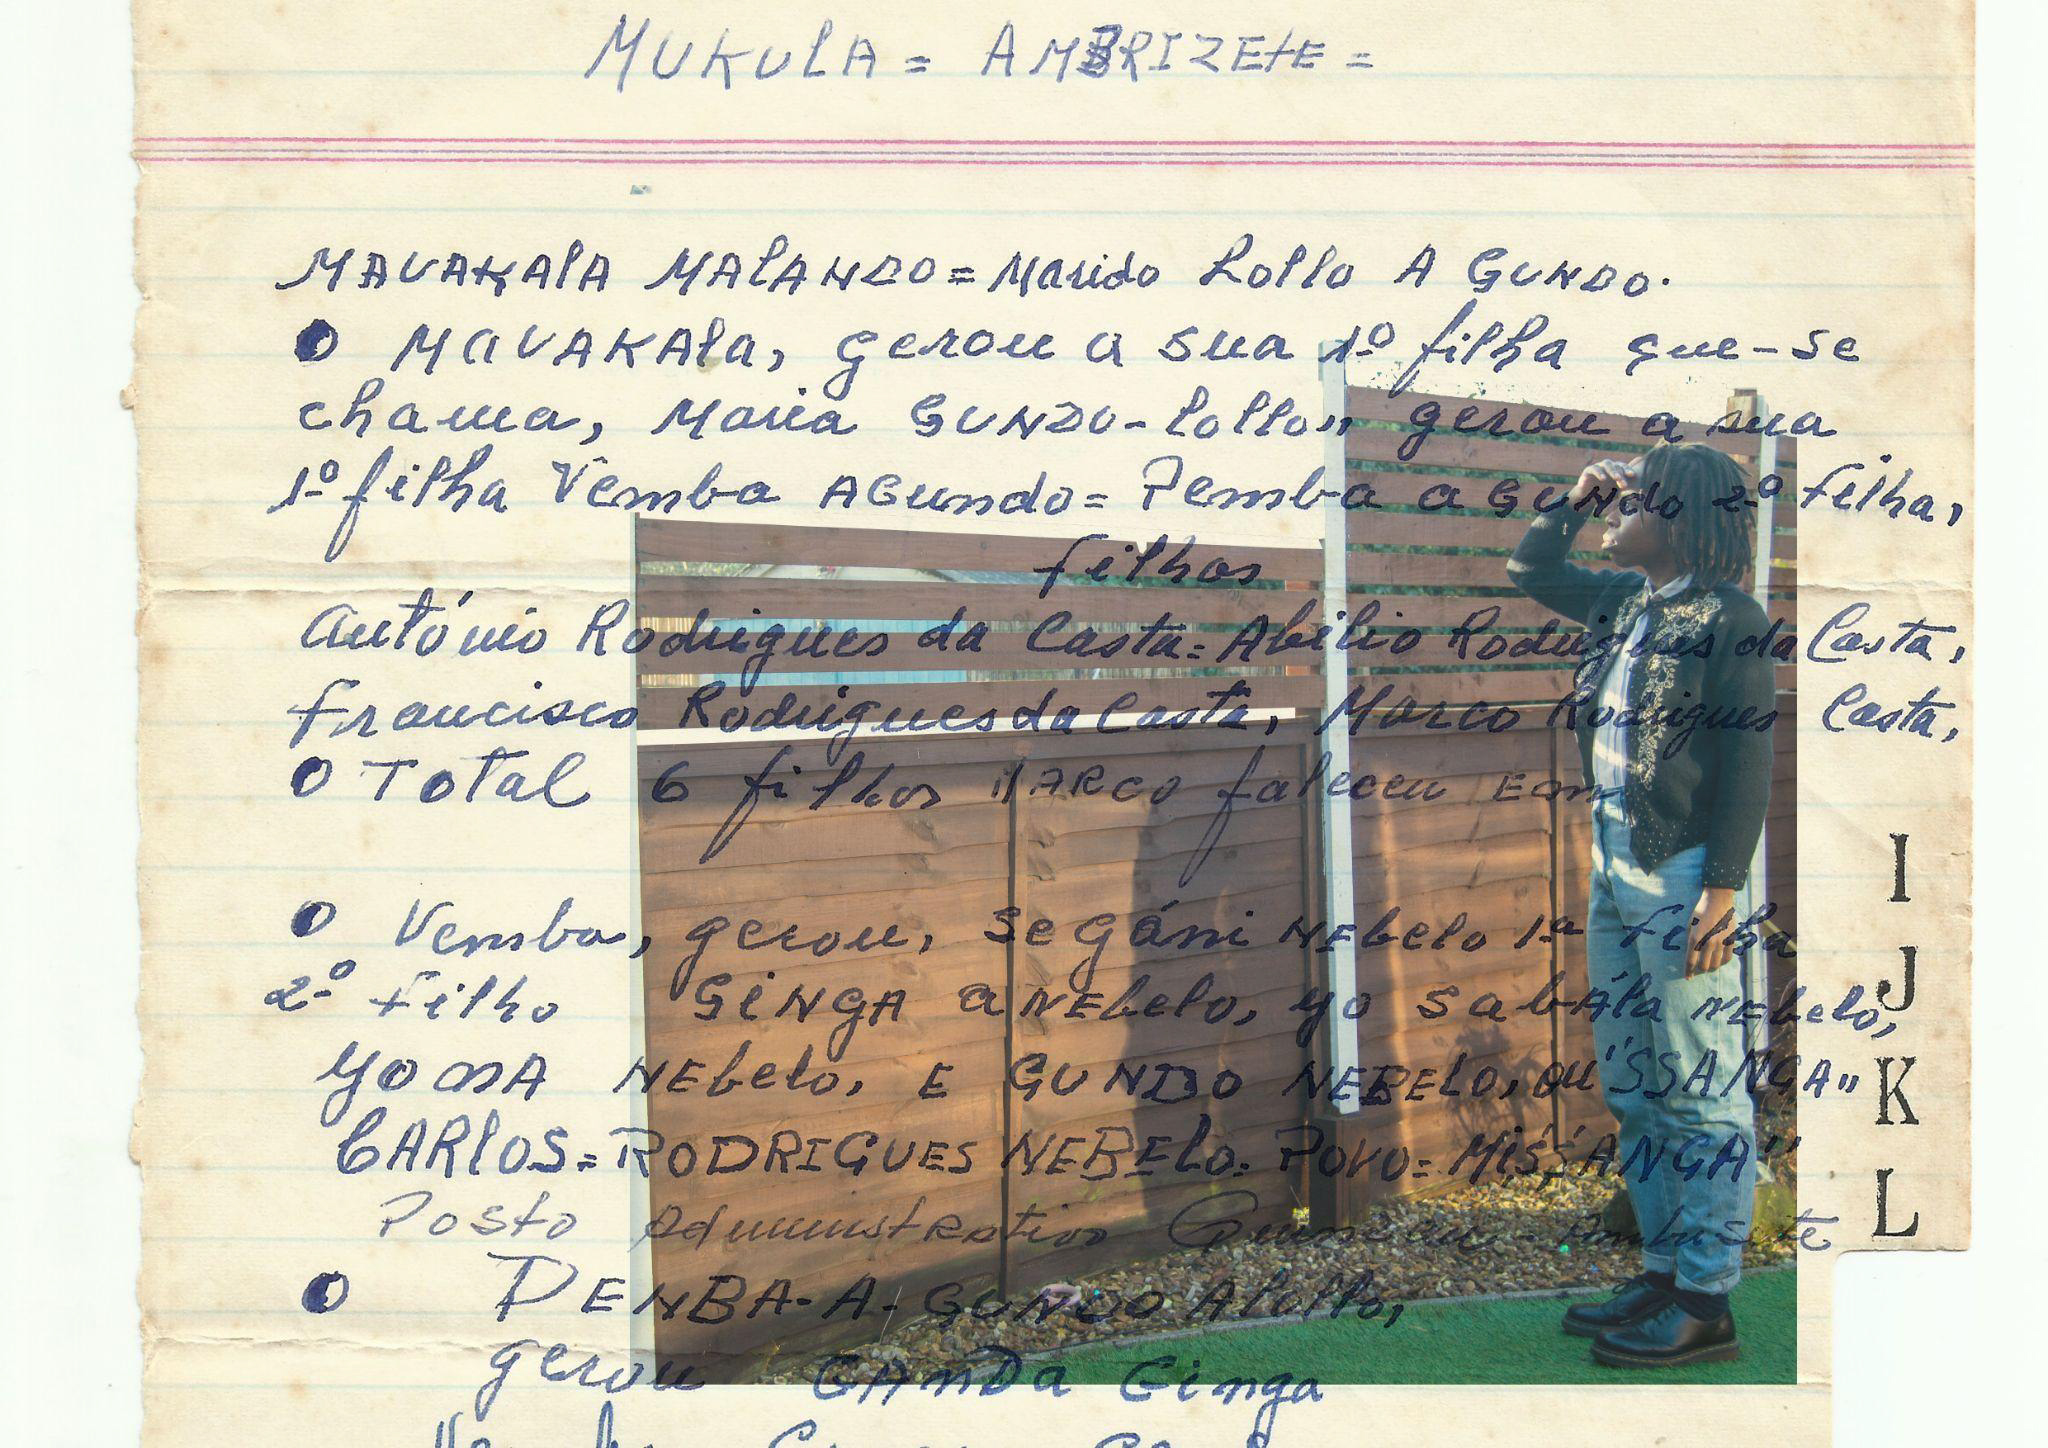 MUKULA = AMBRIZETE =
MAVAKALA MALANDO = Marido Lollo A GUNDO.
MAVAKAla, gerou a sua 1º filha que-se
chama, Maria GUNDO-lollo,, gerou a sua
1º filha Vemba AGundo = Pemba a GUNdo 2º filha,
filhos
António Rodrigues da Costa = Abílio Rodrigues da Costa,
francisco Rodrigues da Costa, Marco Rodrigues Costa,
O Total 6 filhos MARCO faleceu Em
Vemba, gerou, Se gáni NEbelo 1ª filha
2º filho GiNGA a NEbelo, yo sabÁla NEbelo,
NEbelo, E GUNDO NEBELO, ou "SSANGA"
CARLOS = RODRIGUES NEBElo = POVO = MiSSANGA"
Posto Administrativo Ambrizete
PENBA-A-GUNDO Alollo,
gerou GAnDa Ginga
I
J
K
L